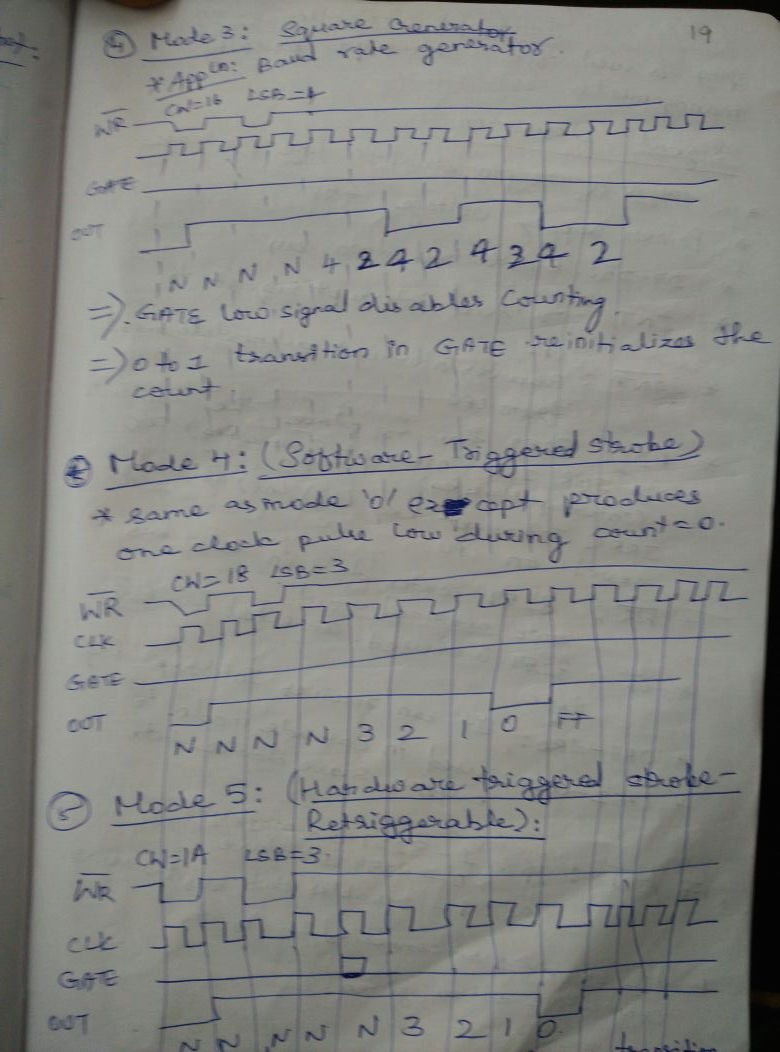 19
④ Mode 3: Square Generator
* Appln: Baud rate generator.
CW=16 LSB=4
WR
GATE
OUT
N N N N 4 2 4 2 4 2 4 2
=>. GATE low signal disables Counting.
=> 0 to 1 transition in GATE reinitializes the
count.
Mode 4: (Software- Triggered strobe)
* same as mode '0' except produces
one clock pulse low during count=0.
CW=18 LSB=3
WR
CLK
GATE
OUT
N N N N 3 2 1 0 FF
⑤ Mode 5: (Hardware triggered strobe-
Retriggerable):
CW=1A LSB=3.
WR
CLK
GATE
OUT
N N N N N 3 2 1 0
transition